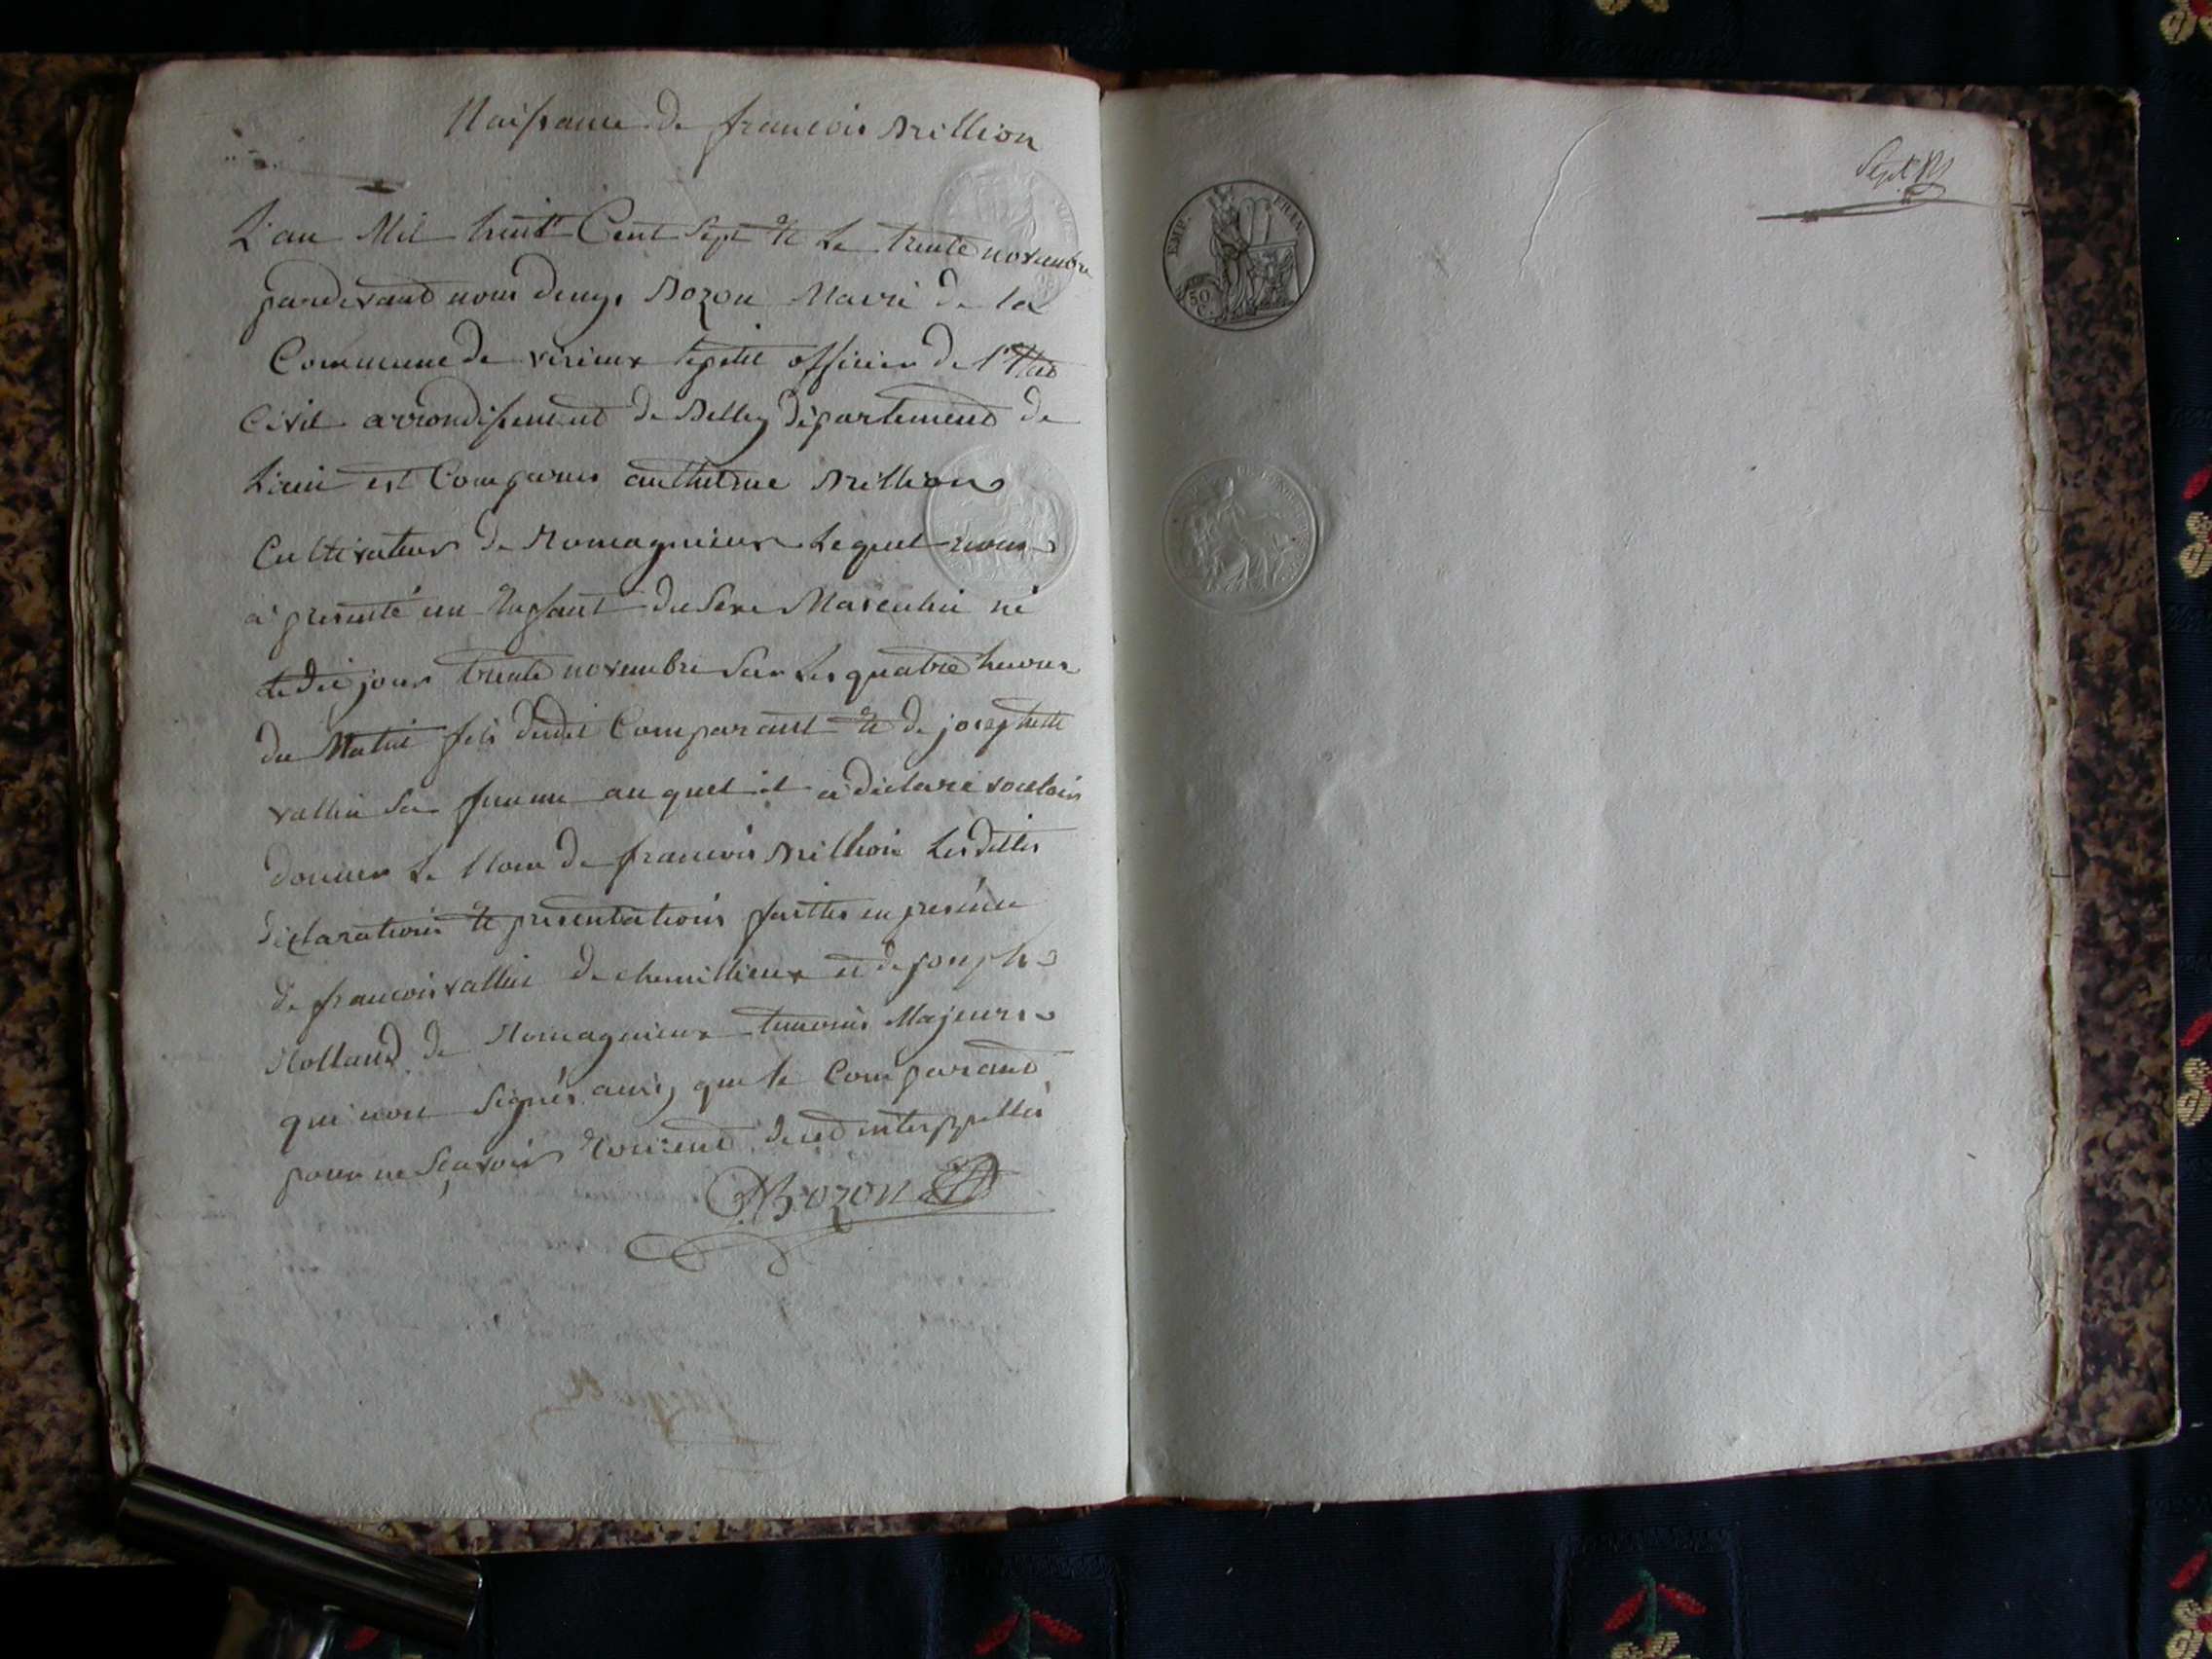 Naissance de francois Million
L'an Mil huit Cent Sept et le trente novembre
pardevant nous denys Bozon Maire de la
Commune de virieux lepetit officier de l'Etat
Civil arrondissement de Belley département de
L'ain est Comparus anthelme Million
Cultivateur de Romagnieux Lequel nous
a presenté un Enfant du Sexe Masculin né
ledit jour trente novembre Sur Les quatre heures
du Matin fils dudit Comparant et de josephette
vallin Sa femme auquel il a déclaré vouloir
donner Le Nom de francois Million Lesdittes
déclarations et présentations faittes en presence
de francois vallin de chemillieux et de joseph
Rolland de Romagnieux temoins Majeurs
qui n'ont Signés aussy que le Comparant
pour ne Sçavoir de ce interppellés
Bozon
EMP. FRAN.
50
C.
Sept